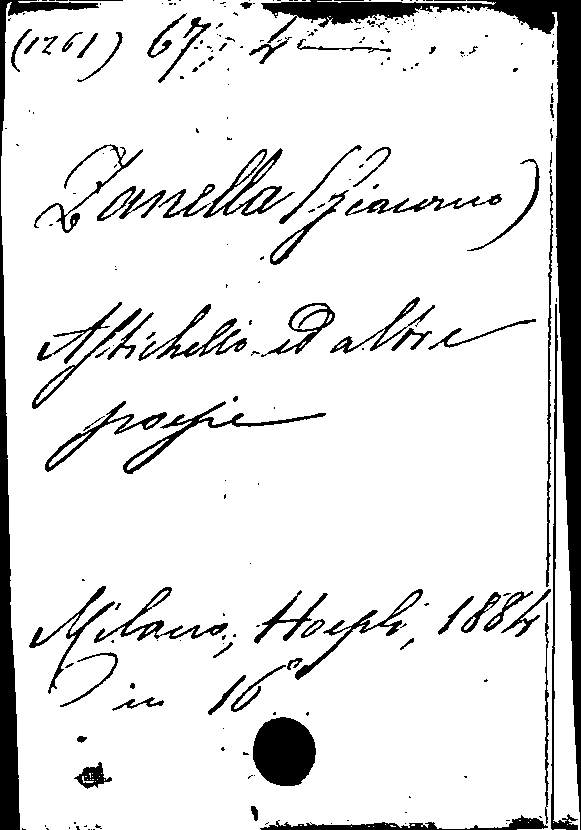 (1261) 67. 4
Zanella (Giacomo)
Astichello ed altre
poesie
Milano, Hoepli, 1884
in 16°